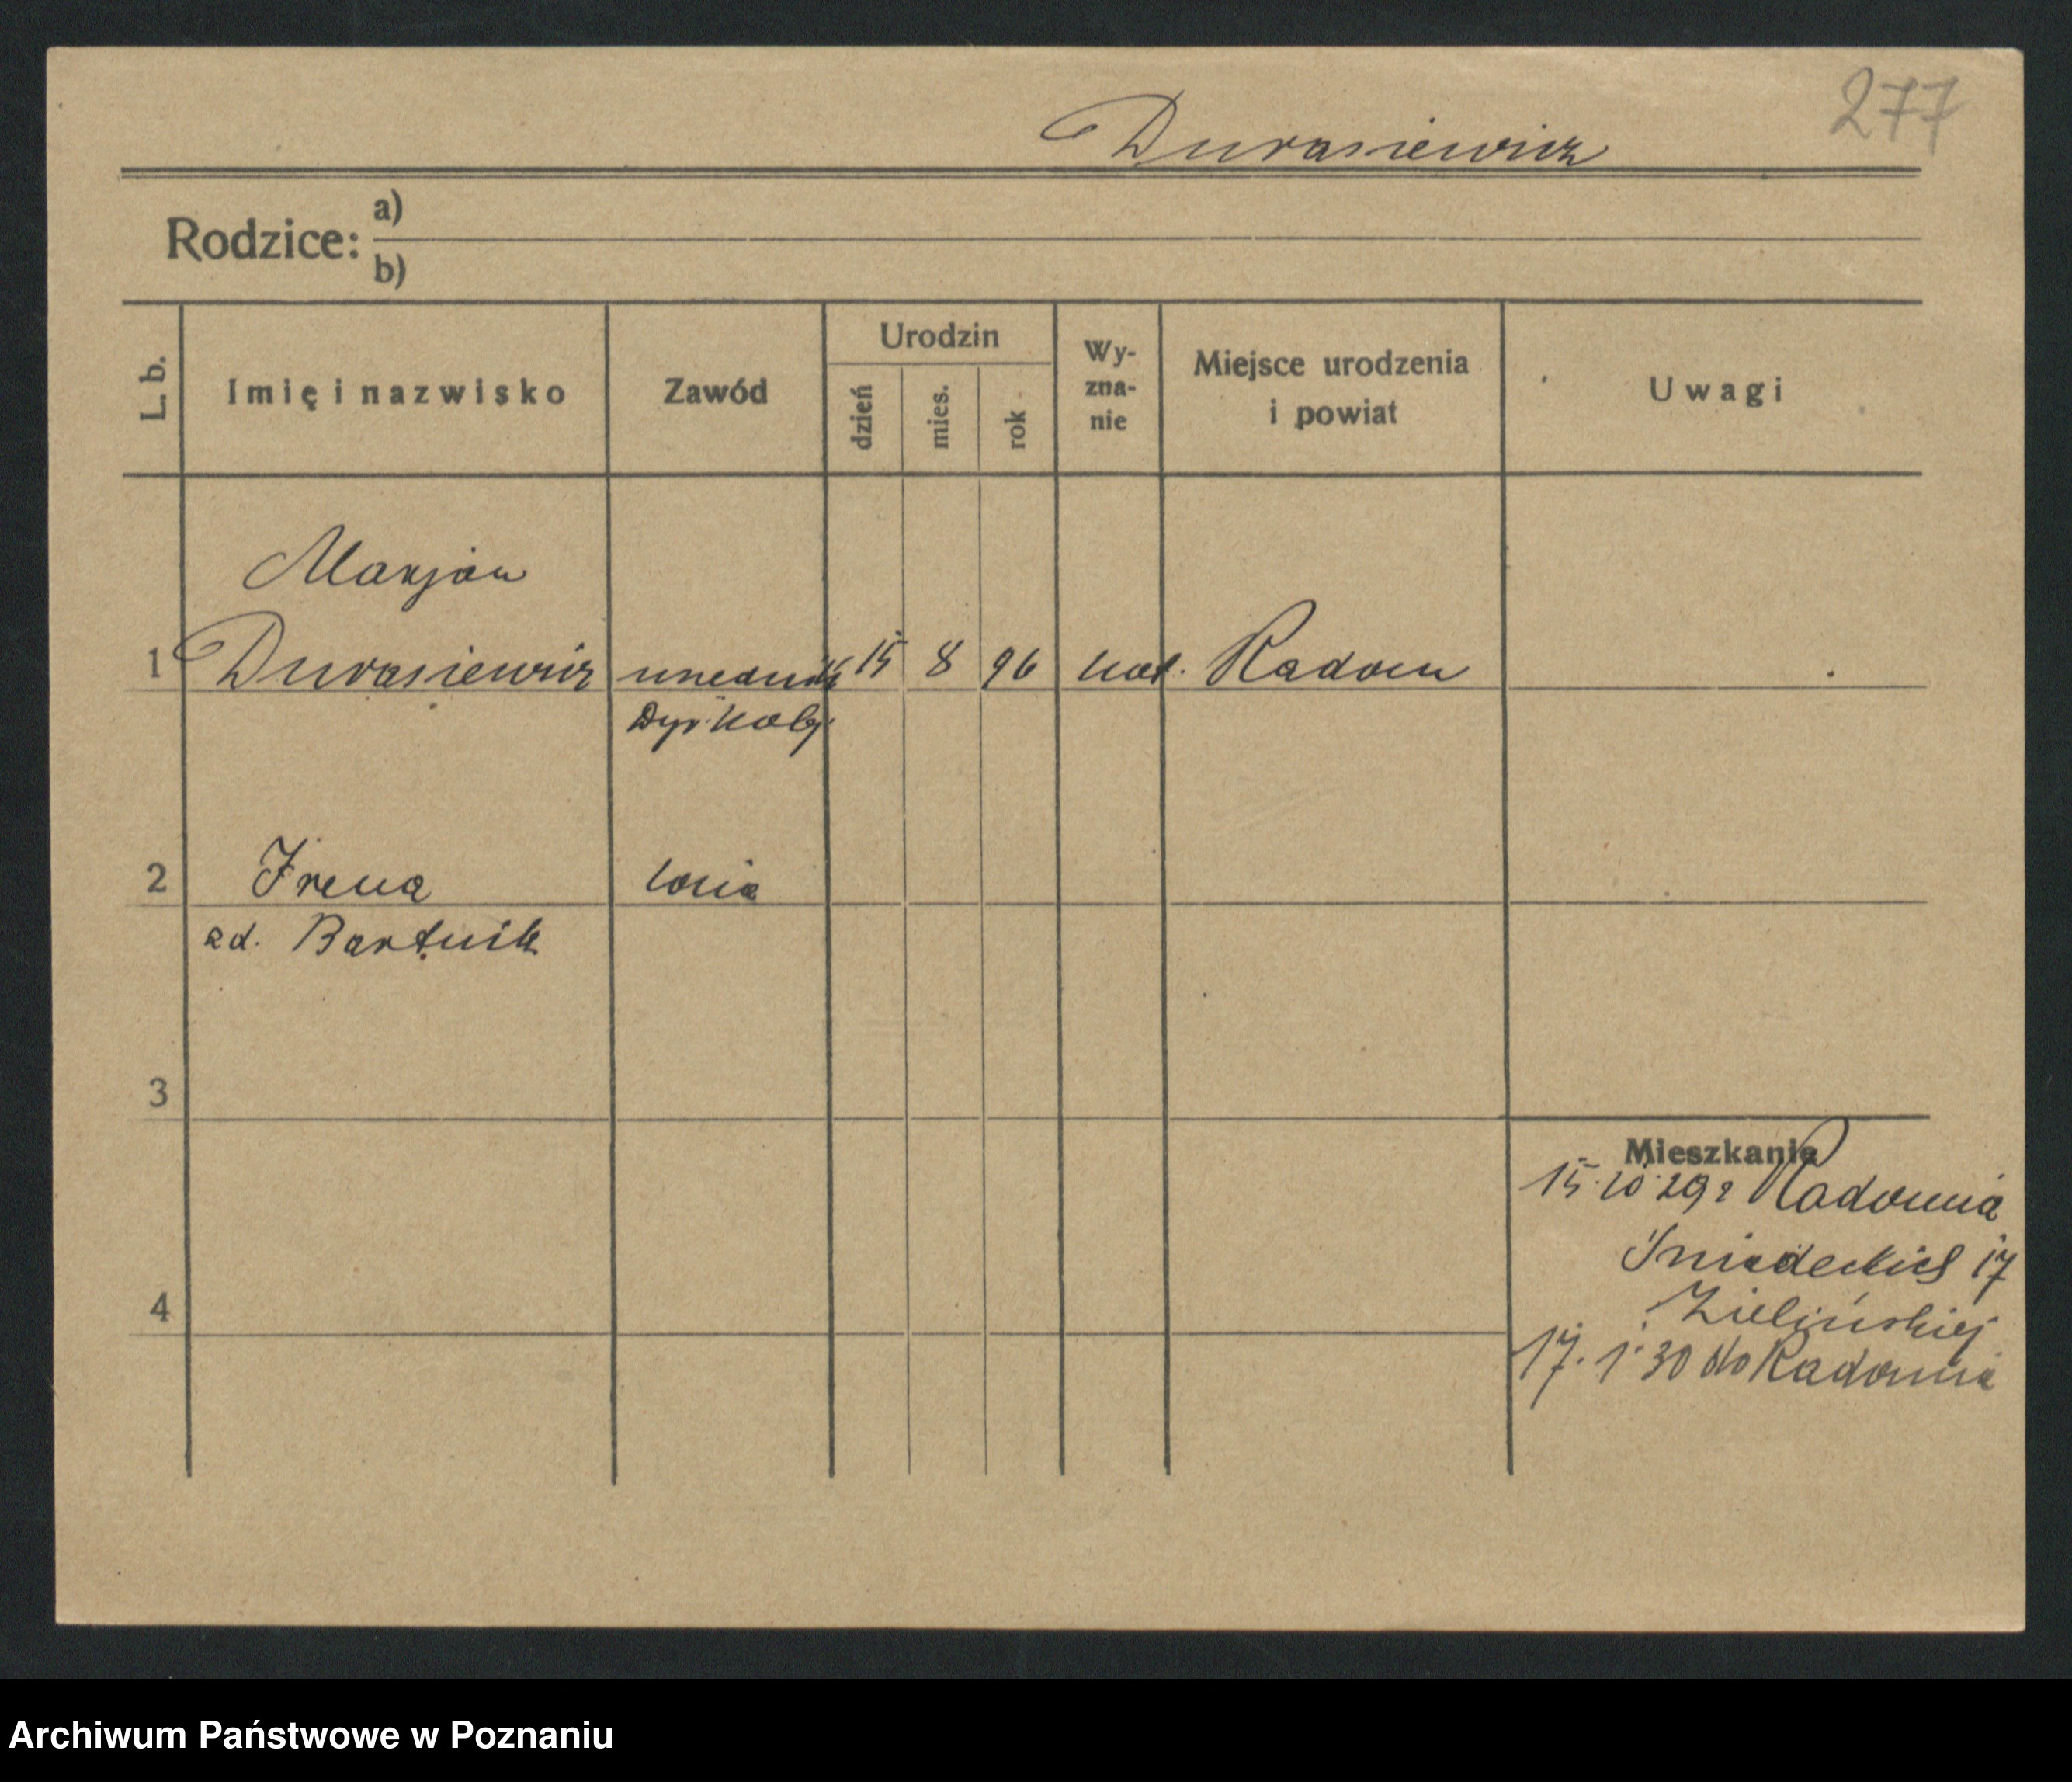 277
Durasiewicz
Rodzice: a)
b)
L. b. Imię i nazwisko Zawód Urodzin dzień mies. rok Wy-zna-nie Miejsce urodzenia i powiat Uwagi
Marjan
1 Durasiewicz urzednik 15 8 96 kat. Radom
Dyr. Kolej.
2 Irena żona
zd. Bartnik
3
Mieszkanie
15.10.29 z Radomia
Śniadeckich 17
Zielińskiej
4
17.1.30 do Radomia
Archiwum Państwowe w Poznaniu